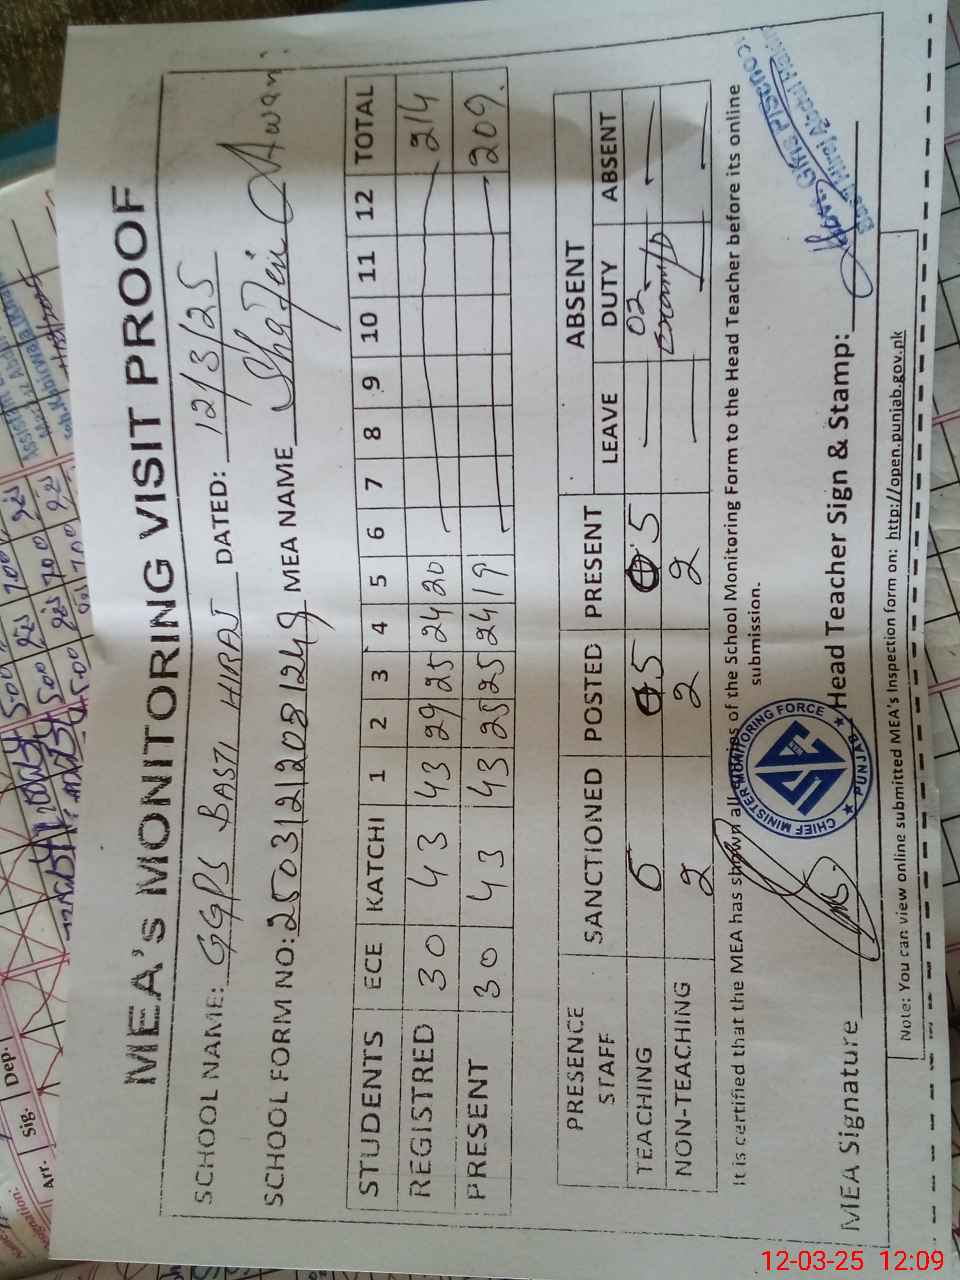 MEA's MONITORING VISIT PROOF
SCHOOL NAME: GGPS BASTI HIRAJ DATED: 12/3/25
SCHOOL FORM NO: MEA NAME Awan
STUDENTS ECE KATCHI 1 2 3 4 5 6 7 8 9 10 11 12 TOTAL
REGISTRED 30 43 43 29 25 24 20 214
PRESENT 30 43 43 25 25 24 19 209.
PRESENCE STAFF SANCTIONED POSTED PRESENT ABSENT
LEAVE DUTY ABSENT
TEACHING 5 5 02
NON-TEACHING 2 2 2
It is certified that the MEA has shown all of the School Monitoring Form to the Head Teacher before its online
submission.
CHIEF MINISTER MONITORING FORCE
★ PUNJAB ★
MEA Signature Head Teacher Sign & Stamp:
Note: You can view online submitted MEA's Inspection form on: http://open.punjab.gov.pk
Arr. Sig. Dep.
12-03-25 12:09